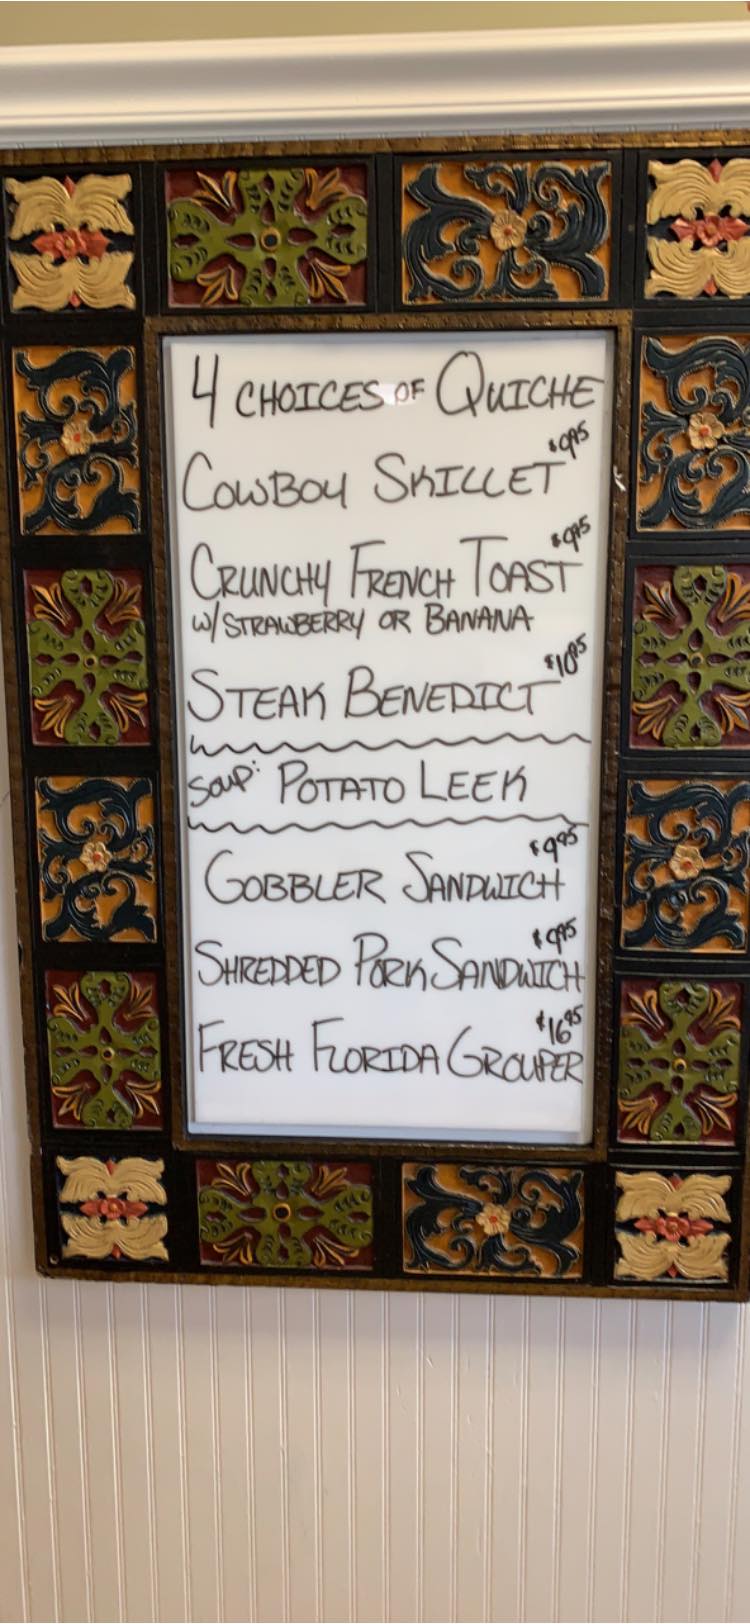 4 CHOICES OF QUICHE
$9.95
COWBOY SKILLET
$9.95
CRUNCHY FRENCH TOAST
W/STRAWBERRY OR BANANA
$10.95
STEAK BENEDICT
SOUP: POTATO LEEK
$9.95
GOBBLER SANDWICH
$9.95
SHREDDED PORK SANDWICH
$16.95
FRESH FLORIDA GROUPER